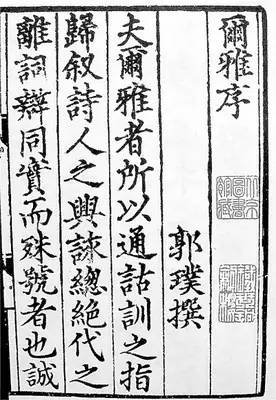 爾雅序
郭璞撰
夫爾雅者所以通詁訓之指
歸叙詩人之興詠緫絶代之
離詞辯同實而殊號者也誠